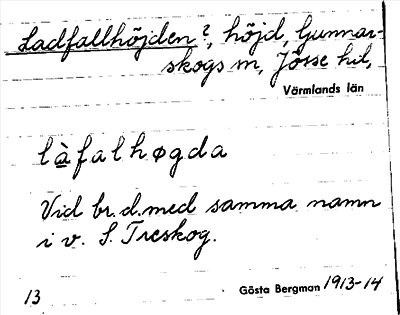 Ladfallhöjden?, höjd, Gunnar-
skogs sn, Jösse hd,
Värmlands län
làfalhøgda
Vid br. d. med samma namn
i v. S. Treskog.
13 Gösta Bergman 1913-14